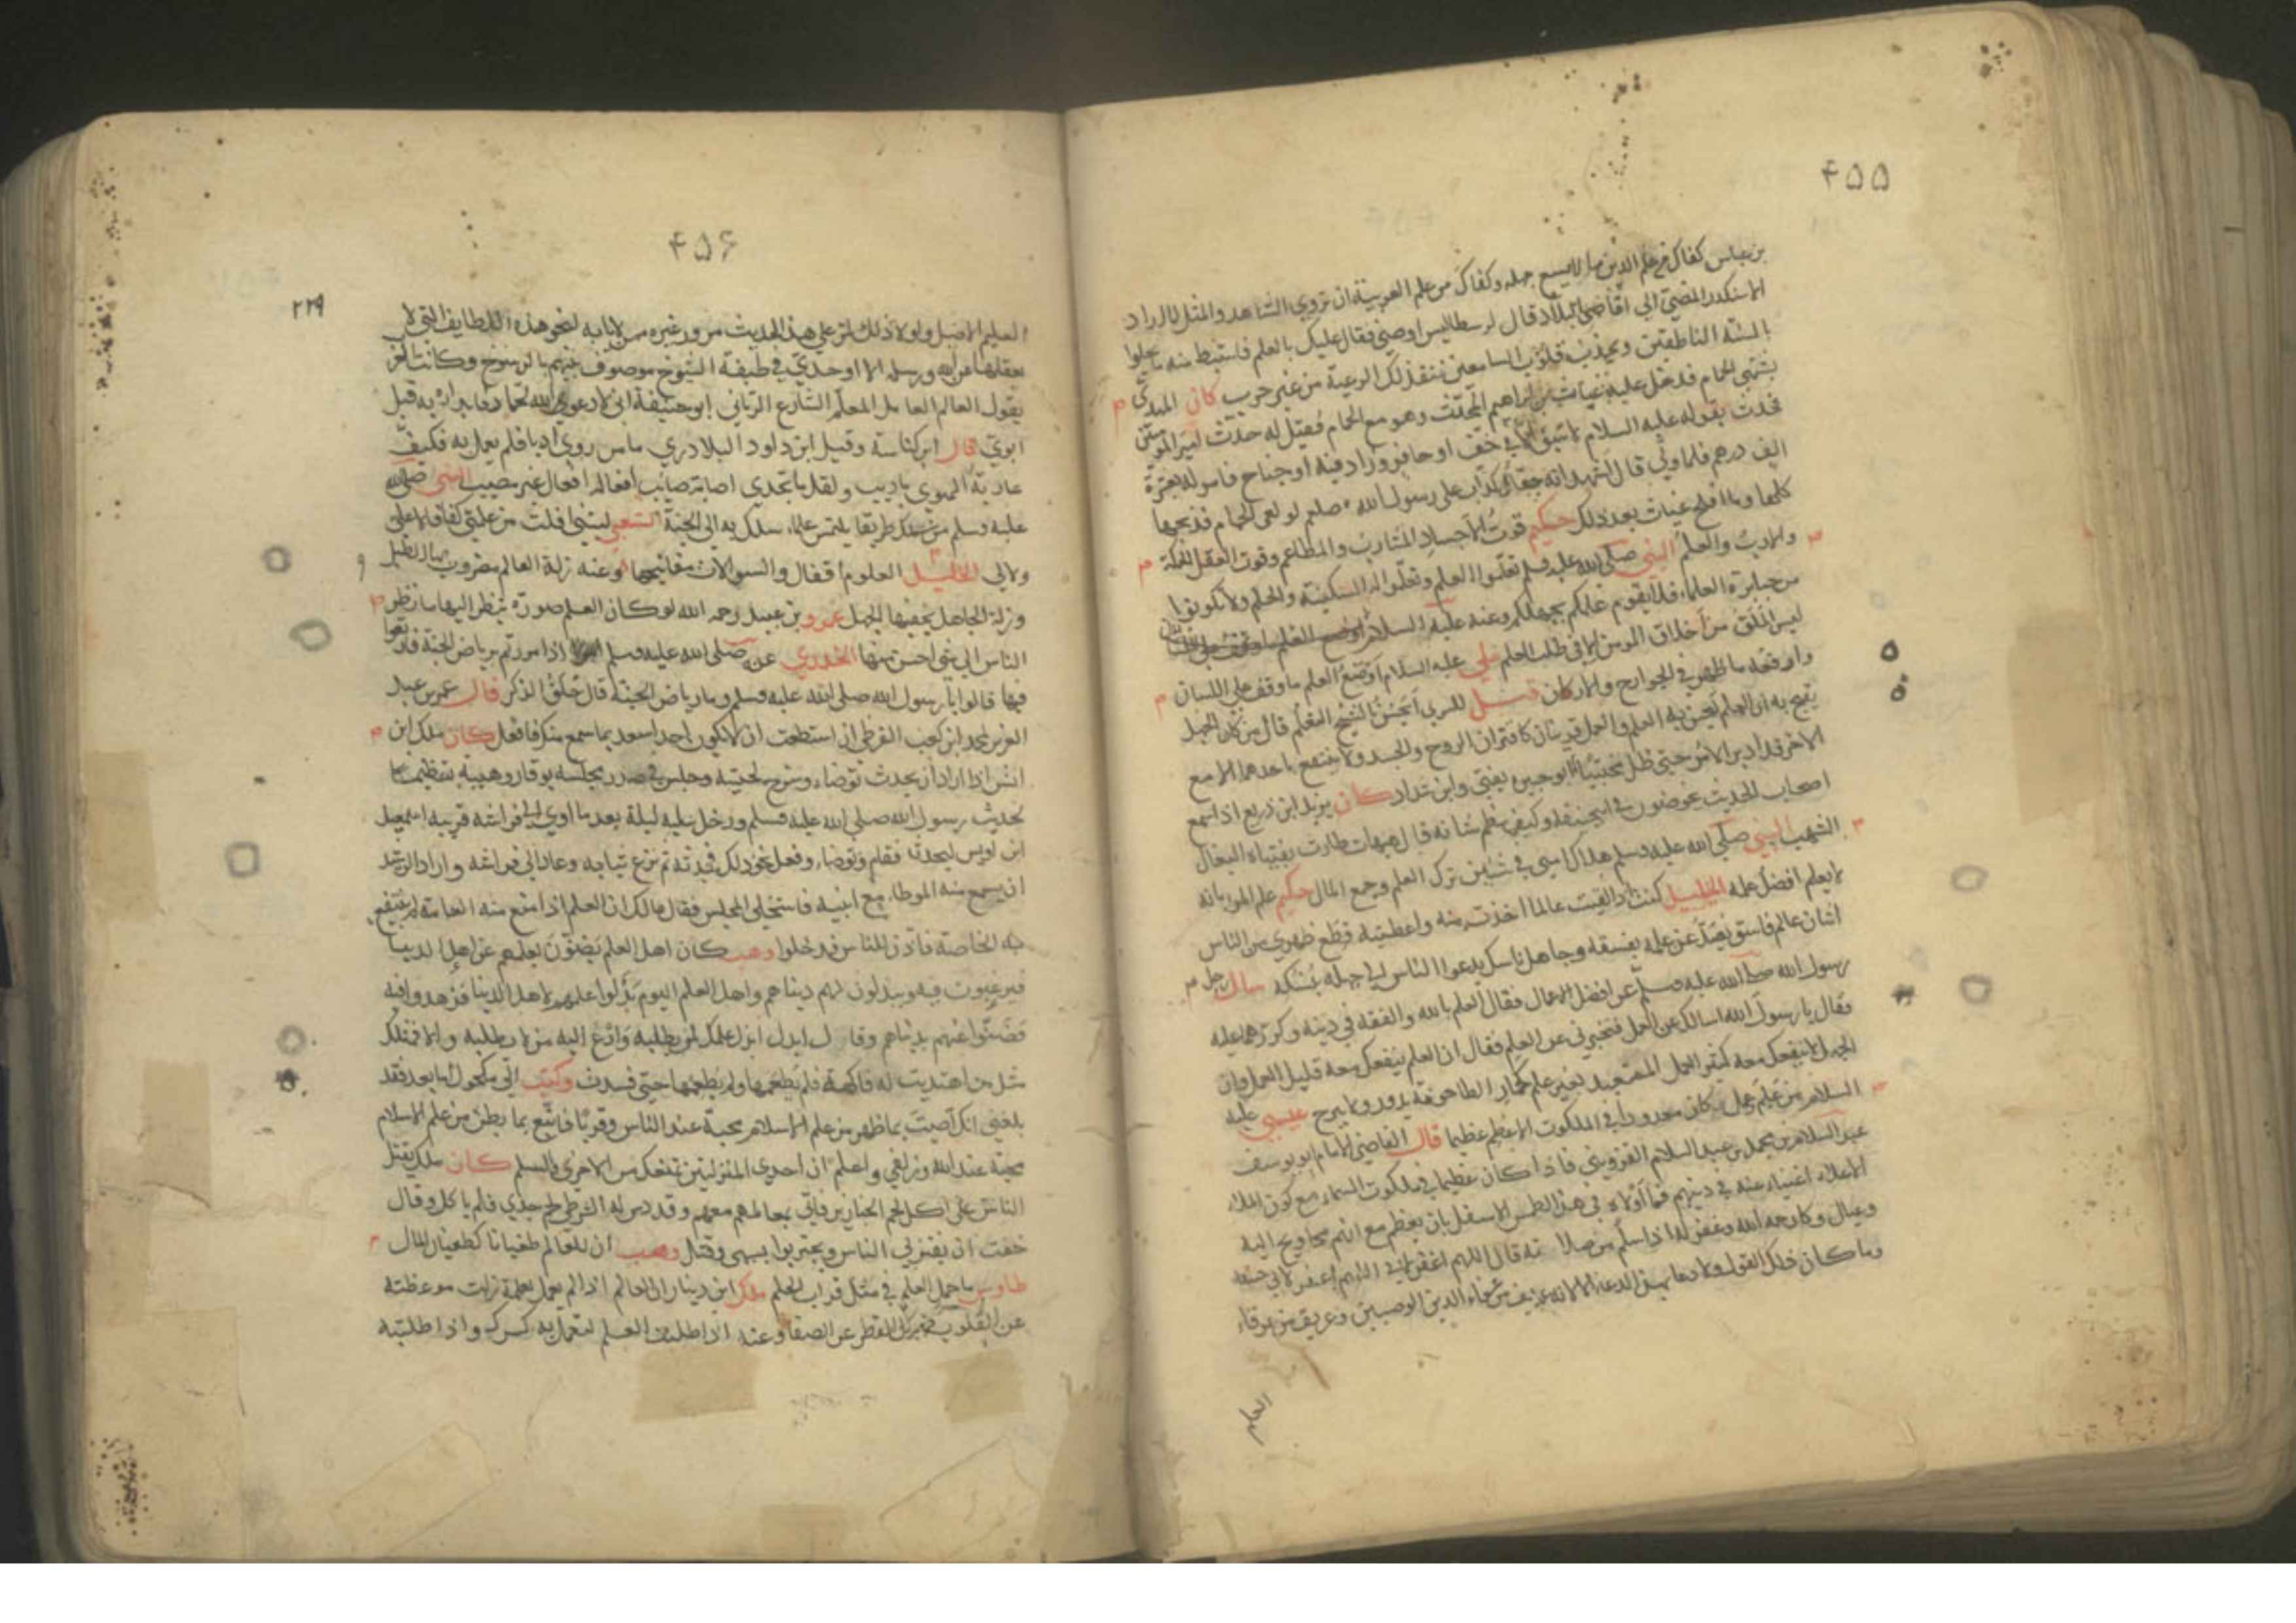 ۴۵۵
بن عباس كفاك من علم الدين ما لا يسع جهله وكفاك من علم العربية ان تروي الشاهد والمثل لما اراد
الاسكندر المضي الى اقاصي البلاد قال لرسطاليس اوصني فقال عليك بالعلم فاستنبط منه ما يحلوا
بالسنة الناطقين ويجذب قلوب السامعين تنقد لك الرعية من غير حرب كان المهدي
يشتهي الحمام فدخل عليه غياث بن ابراهيم المحدث وهو مع الحمام فقيل له حدث امير المومنين
فحدث بقوله عليه السلام لا سبق الا في خف او حافر وزاد فيه او جناح فامر له بعشرة
الف درهم فلما ولي قال اشهد انه قفا كذاب على رسول الله صلعم لو لعى الحمام فذبحها
كلها وما افلح غياث بعد ذلك حكيم قوت الاجساد المشارب والمطاعم وقوت العقل الحكمة
والادب والعلم النبي صلى الله عليه وسلم تعلموا العلم وتعلموا له السكينة والحلم ولا تكونوا
من جبابرة العلماء فلا يقوم علمكم بجهلكم وعنه عليه السلام
ليس الملق من اخلاق المومن الا في طلب العلم علي عليه السلام اوضع العلم ما وقف على اللسان
وارفعه ما ظهر في الجوارح والاركان قيل للمبرد ايحسن بالشيخ التعلم قال من كان الجهل
يقبح به ان العلم يحسن به العلم والعمل قرينان كاقتران الروح والجسد ولا ينتفع باحدهما الا مع
الاخر فدا دبر الامر حتى ظل مختبيا ابو جبيرة يفتي وابن شداد كان يزيد ابن زريع اذا سمع
اصحاب الحديث يخوضون في ابي حنيفة وكيف عظم شانه قال هيهات طارت بفتياه البغال
الشهب النبي صلى الله عليه وسلم هلاك امتي في شيئين ترك العلم وجمع المال حكيم علم المرء بانه
لا يعلم افضل علمه الخليل كنت اذا لقيت عالما اخذت منه واعطيته قطع ظهري من الناس
اثنان عالم فاسق يصد عن علمه بفسقه وجاهل ناسك يدعوا الناس الى جهله بنسكه سال رجل
رسول الله صلى الله عليه وسلم عن افضل الاعمال فقال العلم بالله والفقه في دينه وكررهما عليه
فقال يا رسول الله اسالك عن العمل فتخبرني عن العلم فقال ان العلم ينفعك معه قليل العمل وان
الجهل لا ينفعك معه كثير العمل المتعبد بغير علم كحمار الطاحونة يدور ولا يبرح عيسى عليه
السلام من علم وعمل كان معدودا في الملكوت الاعظم عظيما قال القاضي الامام ابو يوسف
عبد السلام بن محمد بن عبد السلام القزويني فاذا كان عظيما في ملكوت السماء مع كون الملاء
الاعلاء اغنياء عنه في دينهم فما اولاه في هذا الطمس الاسفل بان يعظم مع انهم محاويج اليه
وعيال وكان رحمه الله وغفر له اذا سلم من صلاته قال اللهم اغفر لي اللهم اغفر لابي حنيفة
وما كان ذلك القول ولا دعا بمثل الدعاء الا لانه عريف من علماء الدين الوصيين وعريق من عرقاء
العلم
۴۵۶
۲۲۹
العلم الاصيل ولولا ذلك لمر على هذا الحديث مرور غيره ممن لا يابه لنحو هذه اللطايف التي لا
يعقلها عن الله ورسله الا اوحدي في طبقة الشيوخ موصوف بينهم بالرسوخ وكانت لغز
يقول العالم العامل المعلم الشارع الرباني ابو حنيفة اني لادعوا الله لحماد فابدا به قبل
ابوي قال ابن كناسة وقيل ابن داود البلادري ما من روى ادبا فلم يعمل به فكيف
عاد به الهوى باديب ولقل ما تجدي اصابة صايب افعاله افعال غير مصيب النبي صلى الله
عليه وسلم من سلك طريقا يلتمس علما سلك به الى الجنة الشعبي ليتني افلت من علمي كفافا لا علي
ولا لي الخليل العلوم اقفال والسوالات مفاتيحها وعنه زلة العالم مضروب بها الطبل
وزلة الجاهل يخفيها الجهل عمرو بن عبيد رحمه الله لو كان العلم صورة ينظر اليها ما نظر
الناس الى شيء احسن منها الخدري عنه صلى الله عليه وسلم اذا مررتم برياض الجنة فارتعوا
فيها قالوا يا رسول الله صلى الله عليه وسلم وما رياض الجنة قال حلق الذكر قال عمر بن عبد
العزيز لمحمد ابن كعب القرظي ان استطعت ان لا يكون احد اسعد بما سمع منك فافعل كان ملك ابن
انس اذا اراد ان يحدث توضاء وسرح لحيته وجلس في صدر مجلسه بوقار وهيبة تعظيما
لحديث رسول الله صلى الله عليه وسلم ودخل عليه ليلة بعد ما اوى الى فراشه قريبه اسمعيل
ابن اويس ليحدثه فقام وتوضاء وفعل نحو ذلك فحدثه ثم نزع ثيابه وعاد الى فراشه واراد الرشيد
ان يسمع منه الموطاء مع ابنيه فاستخلى المجلس فقال مالك ان العلم اذا منع منه العامة لم ينتفع
به الخاصة فاذن للناس فدخلوا وهب كان اهل العلم يضنون بعلمهم عن اهل الدنيا
فيرغبون فيه ويبذلون لهم دنياهم واهل العلم اليوم بذلوا علمهم لاهل الدنيا فزهدوا فيه
فضنوا عنهم بدنياهم وقال ابذل علمك لمن يطلبه وادع اليه من لا يطلبه والا فمثلك
مثل من اهتديت له فاكهة فلم يطعمها ولم يطعمها حتى فسدت وكتب الى مكحول اما بعد فقد
بلغني انك اصبت بما ظهر من علم الاسلام محبة عند الناس وقربا فاتبع بما بطن من علم الاسلام
محبة عند الله وزلفى واعلم ان احدى المنزلتين تمنعك من الاخرى والسلم كان ملك يقتل
الناس على اكل لحم الخنازير فاتي بعالمهم معهم وقد دس له الشرطي لحم جدي فلم ياكل وقال
خفت ان يفتن بي الناس ويجتروا بسببي وقتل وهب ان للعالم طغيانا كطغيان المال
طاوس ما حمل العلم في مثل قراب الحلم ملك ابن دينار ان العالم اذا لم يعمل بعلمه زلت موعظته
عن القلوب كما يزل القطر عن الصفا وعنه اذا طلبت العلم لتعمل به كسرك واذا طلبته